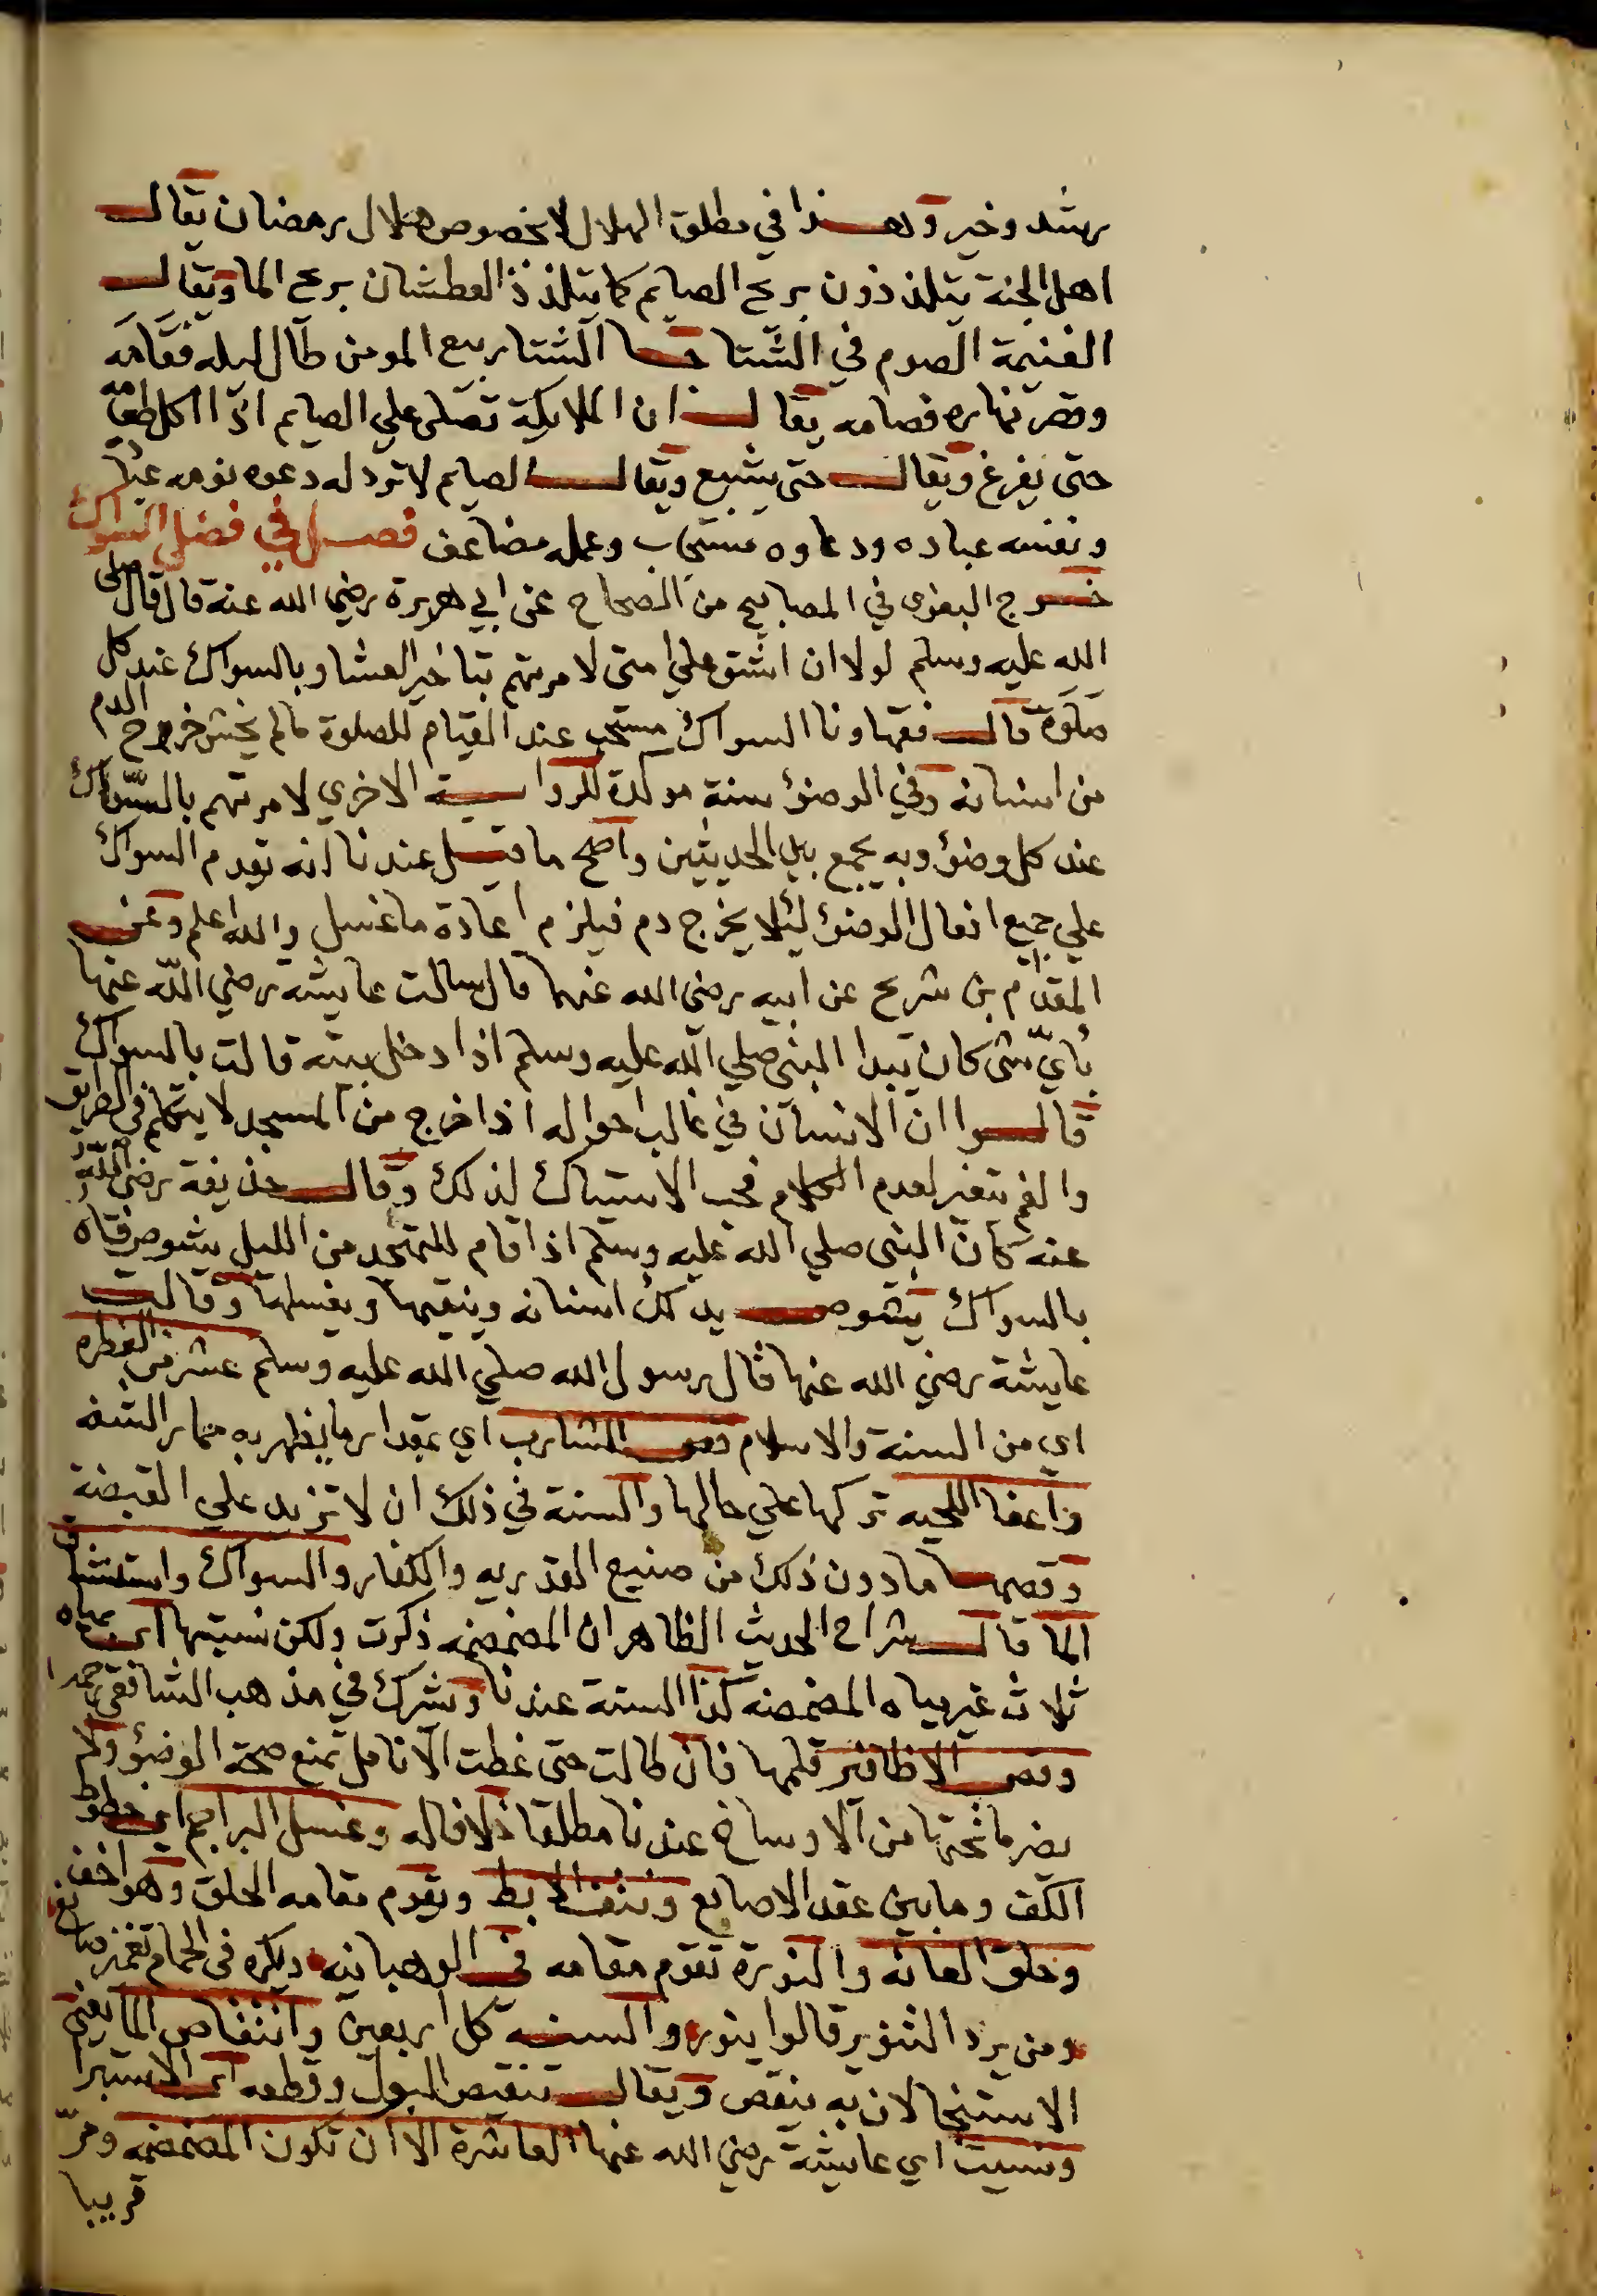 رشد وخير وهذا في مطلق الهلال لا بخصوص هلال رمضان يقال
اهل الجنة يتلذذون بريح الصايم كما يتلذذ العطشان بريح الما ويقال
الغنيمة الصوم في الشتا الشتا ربيع المومن طال ليله فقامه
وقصر نهاره فصامه يقال ان الملايكة تصلى علي الصايم اذا اكل طعامه
حتى يفرغ ويقال حتى يشبع ويقال الصايم لا ترد له دعوه نومه عباده
ونفسه عباده ودعاوه مستجاب وعمله مضاعف فصل في فضل السواك
خرج البغوى في المصابيح من الصحاح عن ابي هريرة رضي الله عنه قال قال صلى
الله عليه وسلم لولا ان اشق علي امتى لامرتهم بتاخير العشا وبالسواك عند كل
صلوة قال فقهاونا السواك مستحب عند القيام للصلوة ما لم يخش خروج الدم
من اسنانه وفي الوضؤ سنة موكدة للرواية الاخري لامرتهم بالسواك
عند كل وضؤ وبه يجمع بين الحديثين واصح ما قيل عندنا انه يقدم السواك
علي جميع افعال الوضؤ ليلا يخرج دم فيلزم اعادة ما غسل والله اعلم وعن
المقدام بن شريح عن ابيه رضى الله عنهما قال سالت عايشة رضي الله عنها
بأيّ شى كان يبدا النبى صلي الله عليه وسلم اذا دخل بيته قالت بالسواك
قالوا ان الانسان في غالب احواله اذا خرج من المسجد لا يتكلم في الطريق
والفم يتغير لعدم الكلام فيحب الاستياك لذلك وقال حذيفة رضى الله
عنه كان النبى صلي الله عليه وسلم اذا قام للتهجد من الليل يشوص فاه
بالسواك يشوص يدلك اسنانه وينقيها ويغسلها وقالت
عايشة رضي الله عنها قال رسول الله صلي الله عليه وسلم عشر من الفطره
اي من السنة والاسلام قص الشارب اي بقدار ما يظهر به الشفه
واعفا اللحيه تركها علي حالها والسنة في ذلك ان لا تزيد علي القبضة
وقصها ما دون ذلك من صنيع القدريه والكفار والسواك واستنشاق
الما قال شراح الحديث الظاهر ان المضمضه ذكرت ولكن نسيتها اى بمياه
ثلاث غير مياه المضمضة كذا السنة عندنا وتشرك في مذهب الشافعى
وقص الاظافر قلمها فان طالت حتى غطت الانامل تمنع صحة الوضؤ ولم
يضر ما تحتها من الاوساخ عندنا مطلقا خلافا له وغسل البراجم اى خطوط
الكف وما بين عقد الاصابع ونتف الابط ويقوم مقامه الحلق وهو اخف
وحلق العانه والنورة تقوم مقامه في الوهبانيه ويكره في الحمام تغميز صايم
ومن يرد التنوير قالوا ينور والسنه كل اربعين وانتقاص الما يعنى
الاستنجا لان به ينقص ويقال تنقيص البول وقطعه اى الاستبرا
ونسيت اي عايشة رضي الله عنها العاشرة الا ان تكون المضمضه ومرّ
قريبا